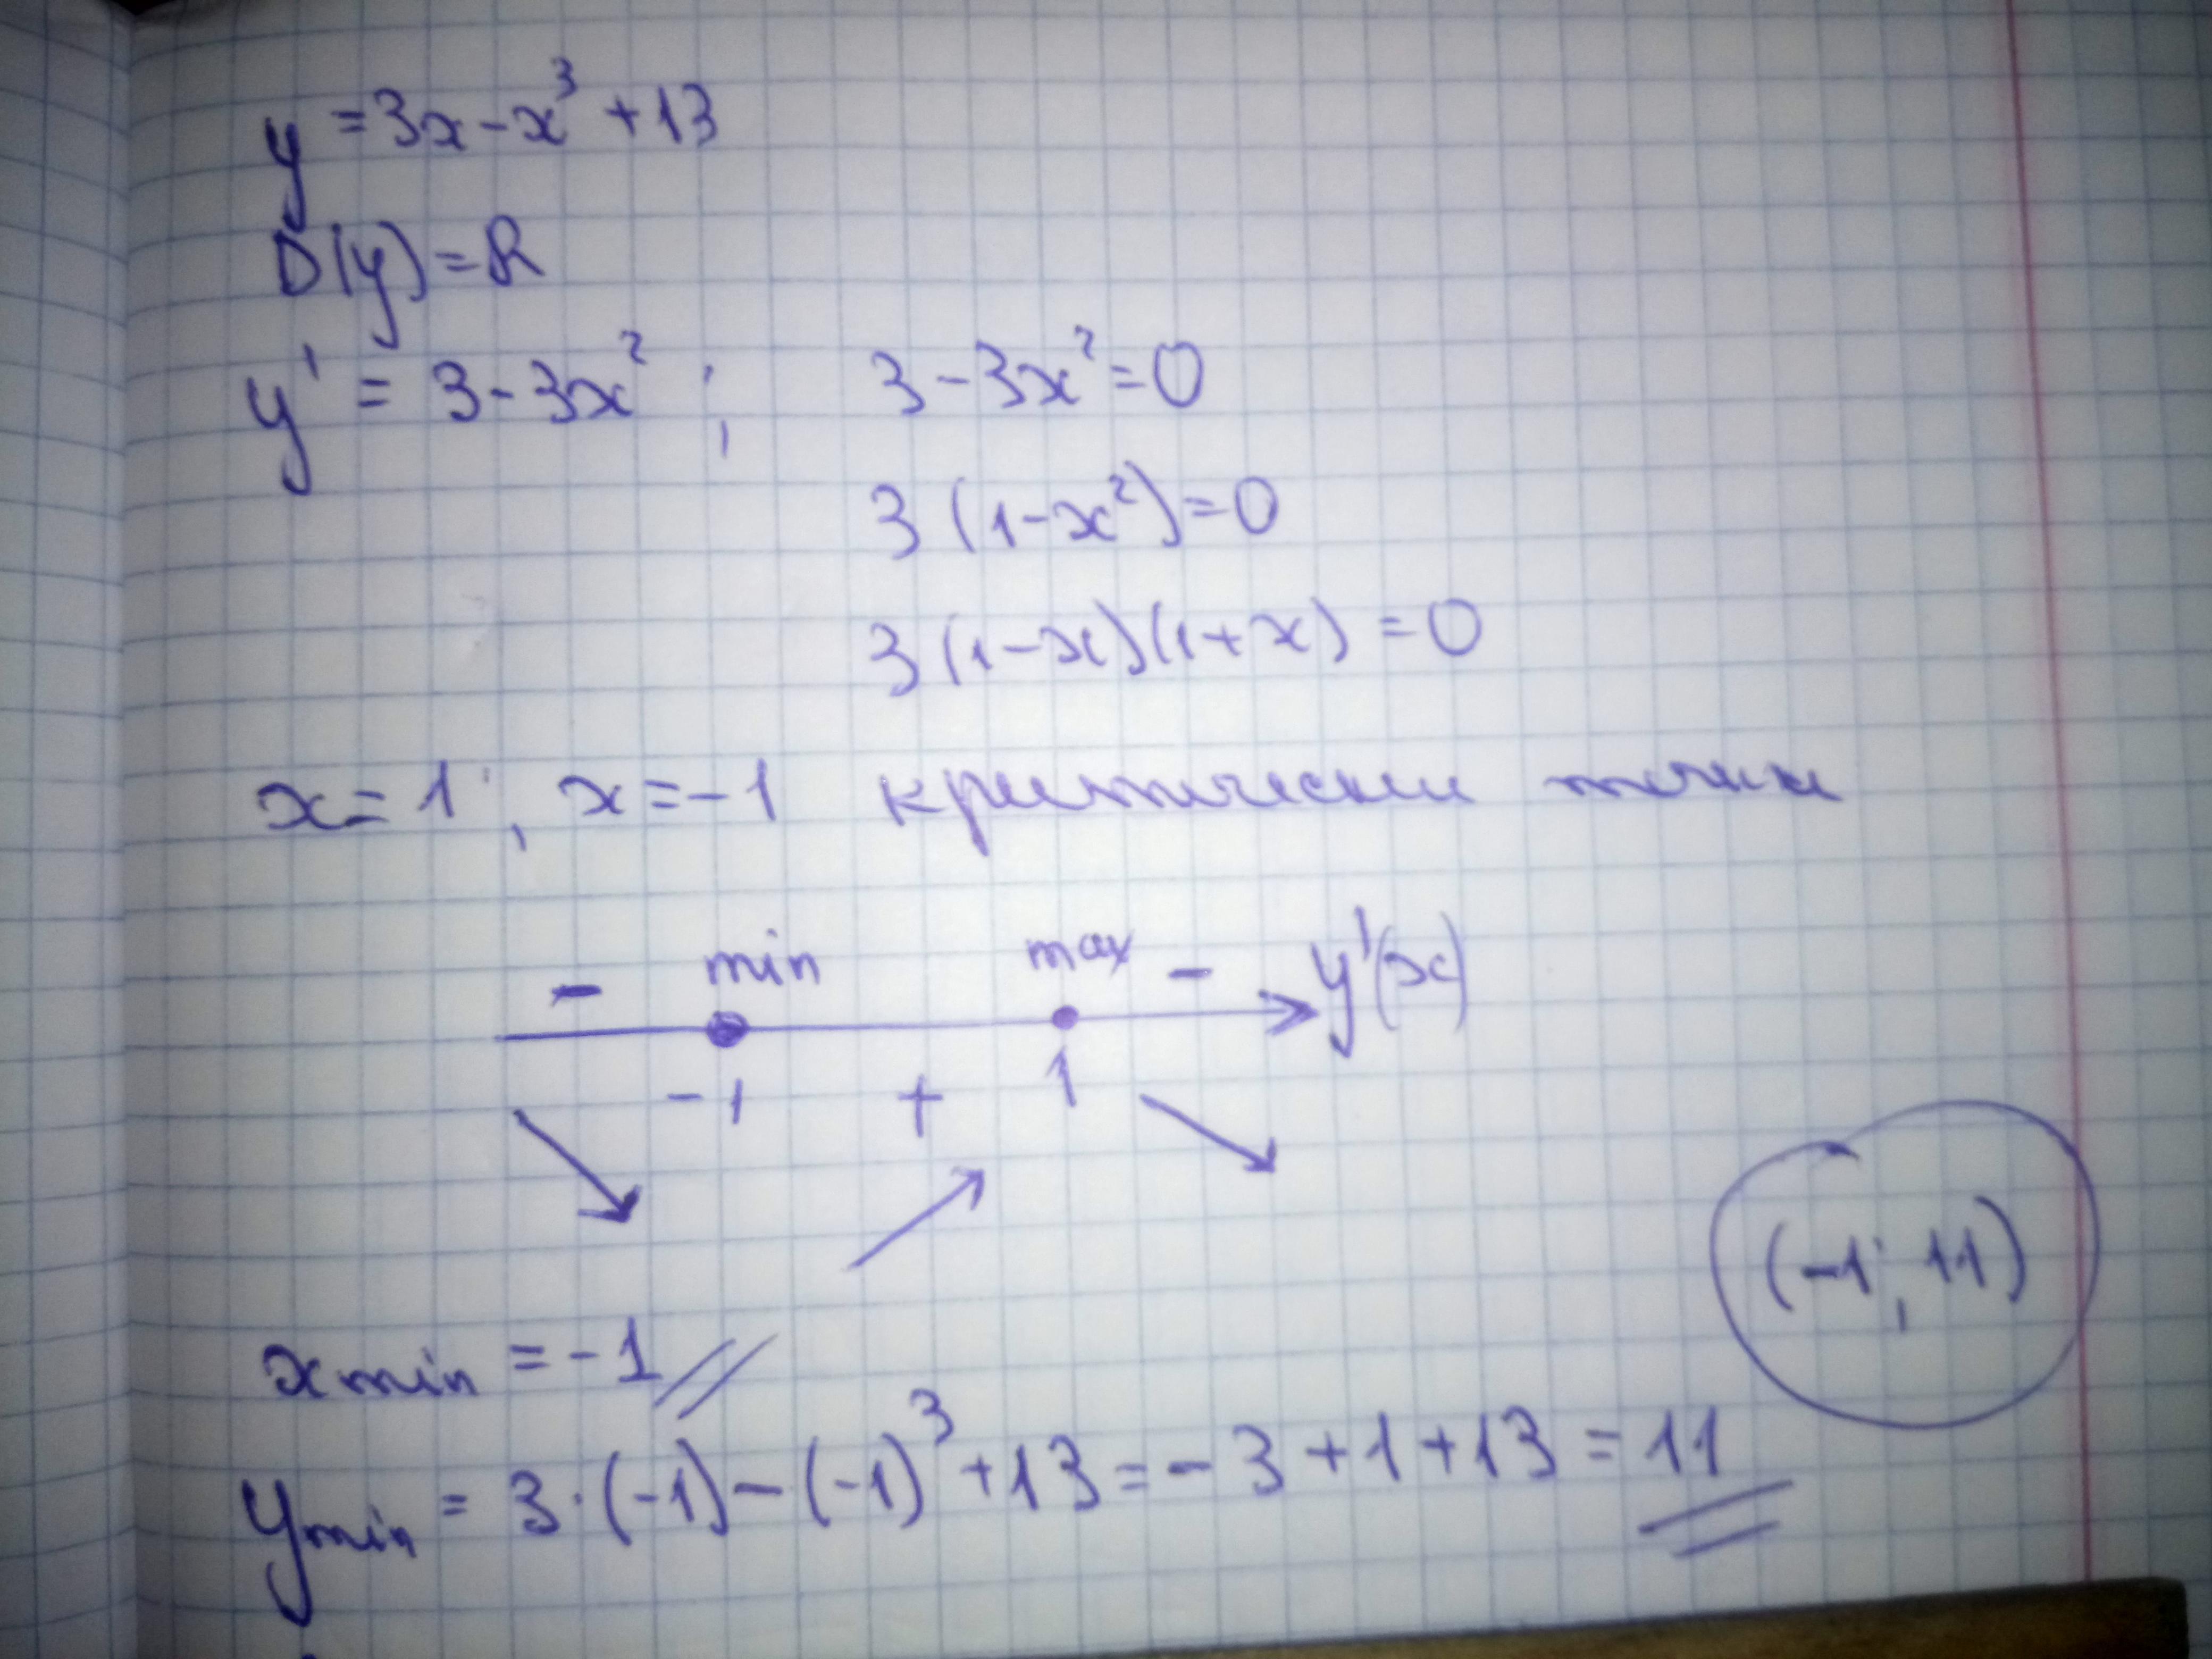 y = 3x - x³ + 13
D(y) = R
y' = 3 - 3x² ; 3 - 3x² = 0
3(1 - x²) = 0
3(1 - x)(1 + x) = 0
x = 1; x = -1 критические точки
- min max - y'(x)
-1 + 1
(-1; 11)
xmin = -1
ymin = 3·(-1) - (-1)³ + 13 = -3 + 1 + 13 = 11